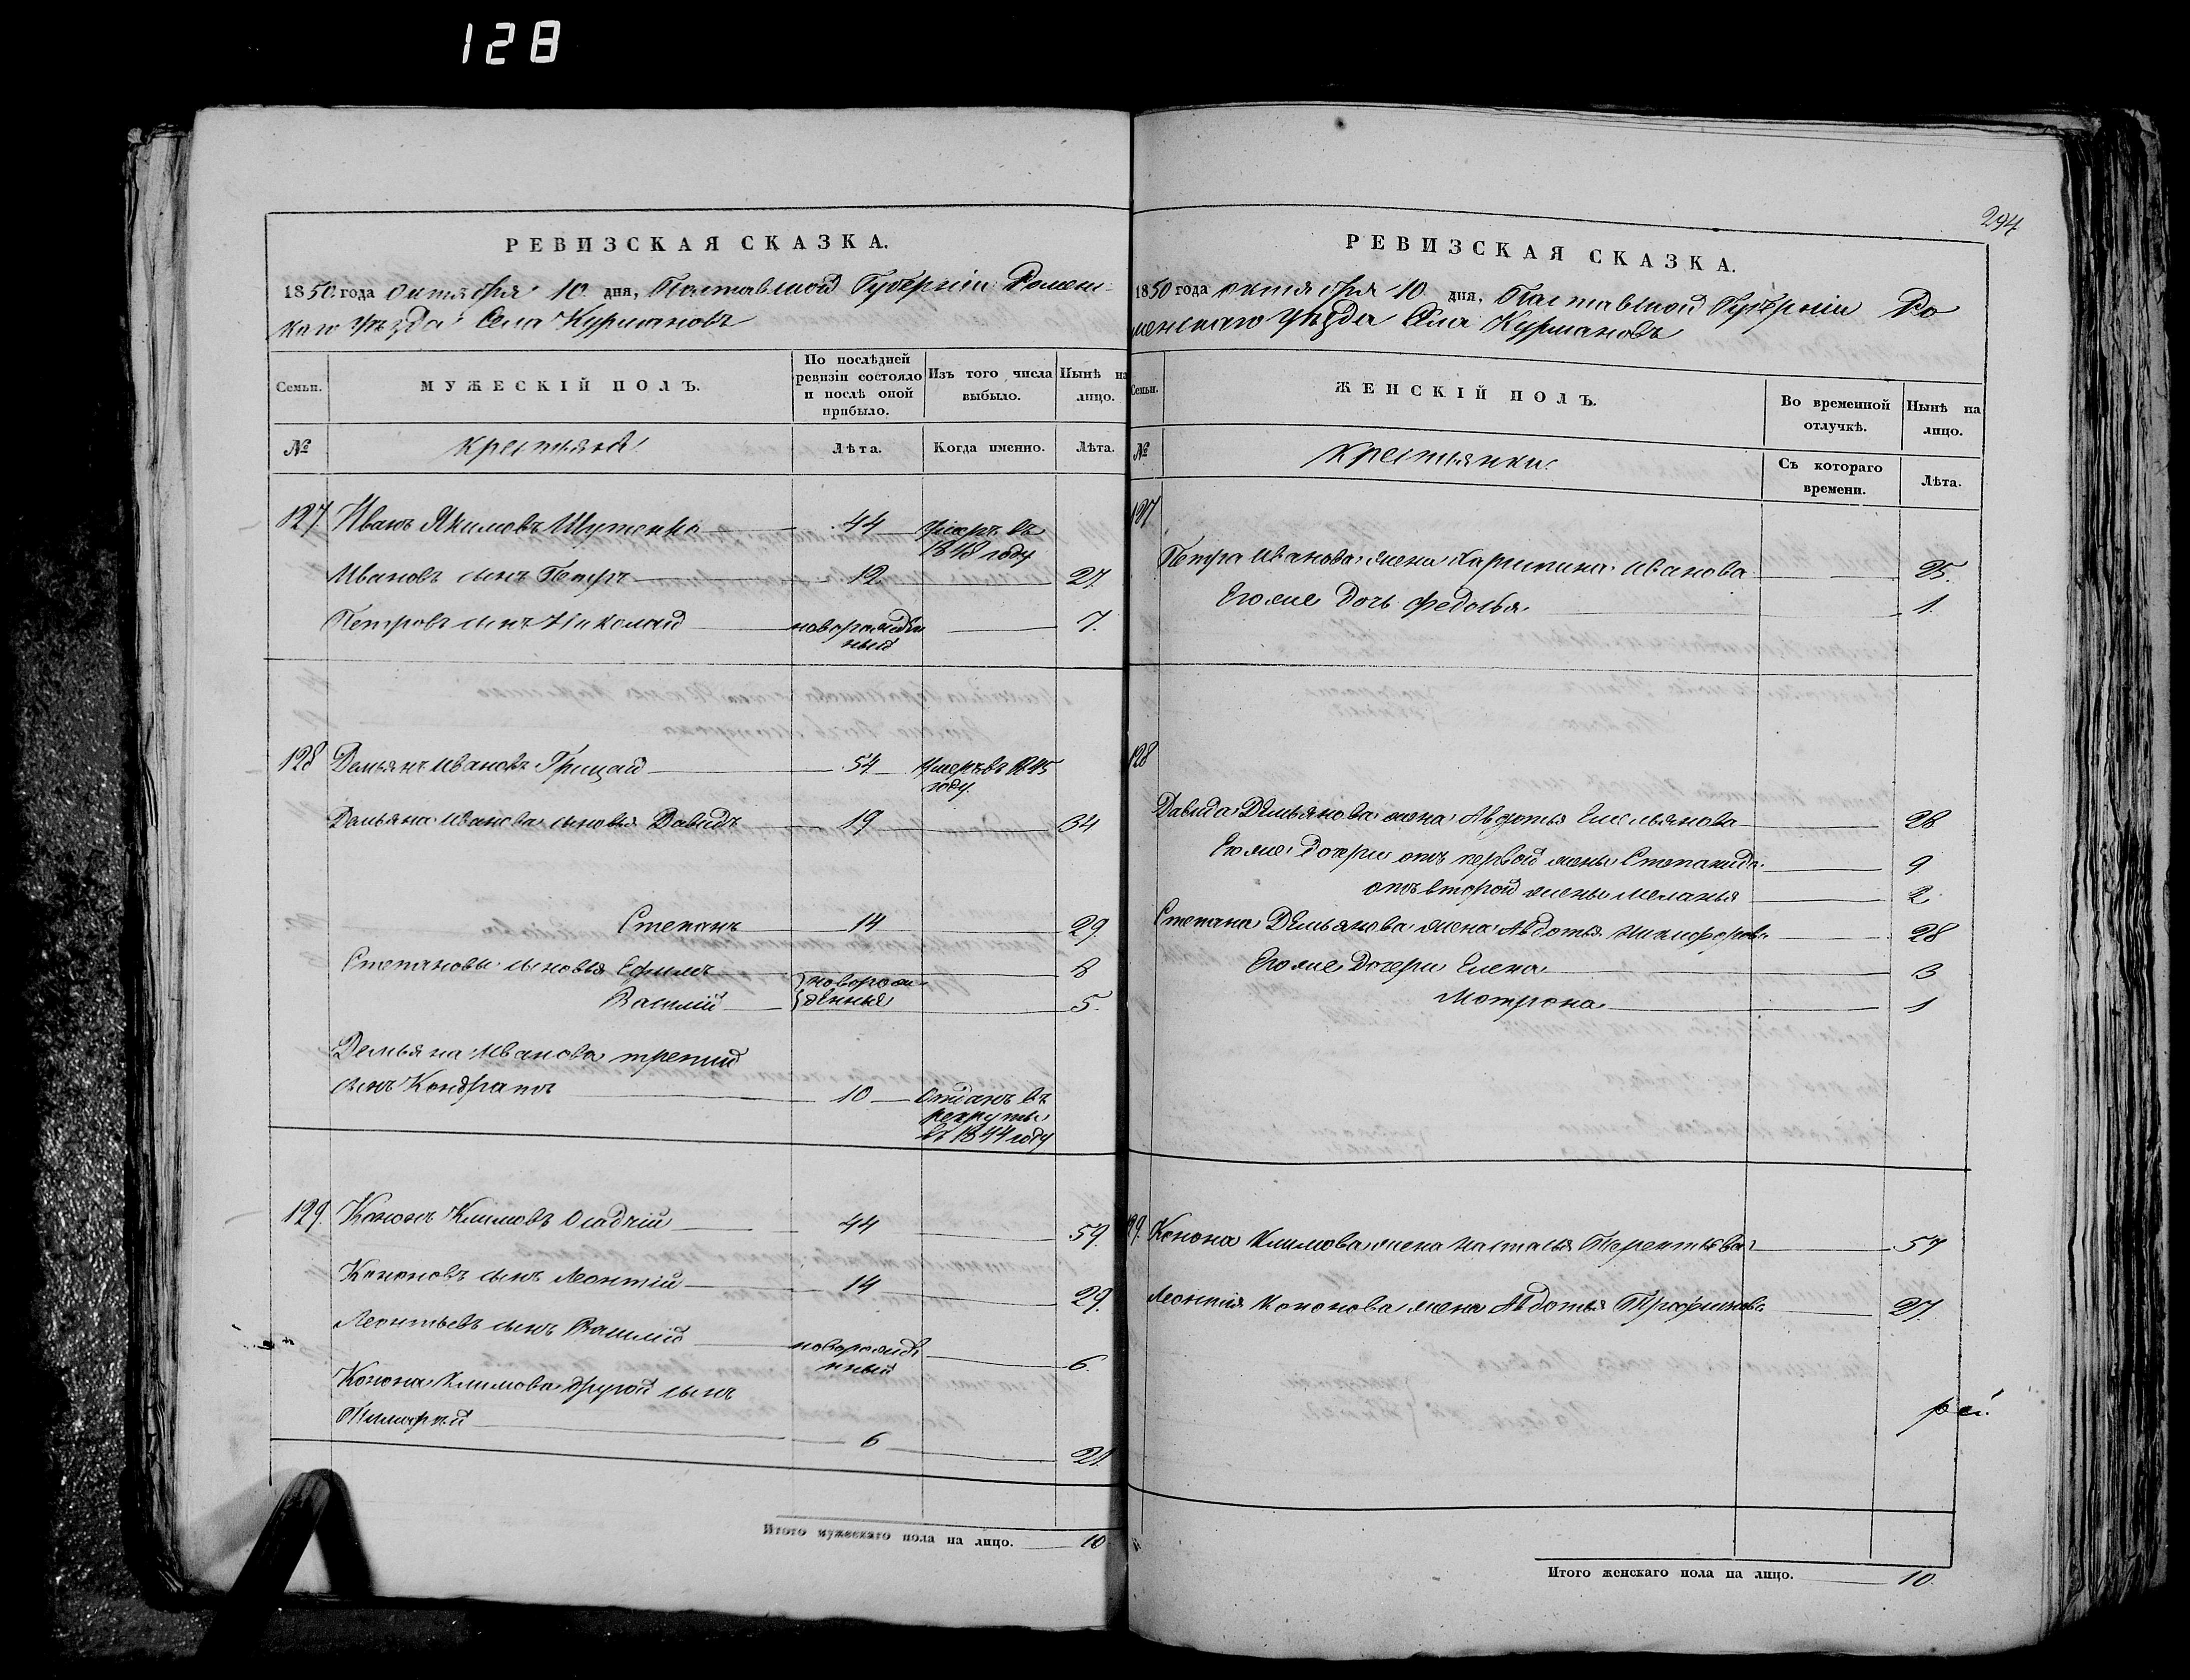 128
РЕВИЗСКАЯ СКАЗКА.
1850 года октября 10 дня, Полтавской Губернiи Ромен-
скаго Уѣзда Села Курмановъ
Семьи.
МУЖЕСКІЙ ПОЛЪ.
По послѣдней ревизіи состояло и послѣ оной прибыло.
Изъ того числа выбыло.
Нынѣ на лицо.
№
крестьяне
Лѣта.
Когда именно.
Лѣта.
127 Иванъ Якимовъ 44 умеръ въ
1848 году
Ивановъ сынъ Петръ 12 27.
Петровъ сынъ Николай новорожден
ный 7.
128 Демьянъ Ивановъ Грицай 54 умеръ въ 1845
году.
Демьяна Иванова сыновья Давидъ 19 34
Степанъ 14 29.
Степановы сыновья Ефимъ новорож- 8
Василій денные 5.
Демьяна Иванова третий
сынъ Кондратъ 10 Отданъ въ
рекруты
въ 1844 году
129. Кононъ Климовъ Осадчій 44 59.
Кононовъ сынъ Леонтій 14 29.
Леонтьевъ сынъ Василій новорожде
нный 6.
Конона Климова другой сынъ
6 21.
Итого мужескаго пола на лицо. 10
294
РЕВИЗСКАЯ СКАЗКА.
1850 года октября 10 дня, Полтавской Губернiи Ро
менскаго Уѣзда Села Курмановъ
Семьи.
ЖЕНСКІЙ ПОЛЪ.
Во временной отлучкѣ.
Нынѣ на лицо.
№
крестьянки
Съ котораго времени.
Лѣта.
127
Петра Иванова жена Харитина Иванова 25.
Его же дочь Федосья 1.
128
Давида Демьянова жена Емельянова 28
Его же дочери отъ первой жены Степанида 9
отъ второй жены Меланья 2
Степана Демьянова жена Авдотья Никифорова 28
Его же дочери Елена 3
Мотрона 1
129. Конона Климова жена Настасья Терентьева 57
Леонтія Кононова жена Авдотья Трофимова 27.
Итого женскаго пола на лицо. 10.